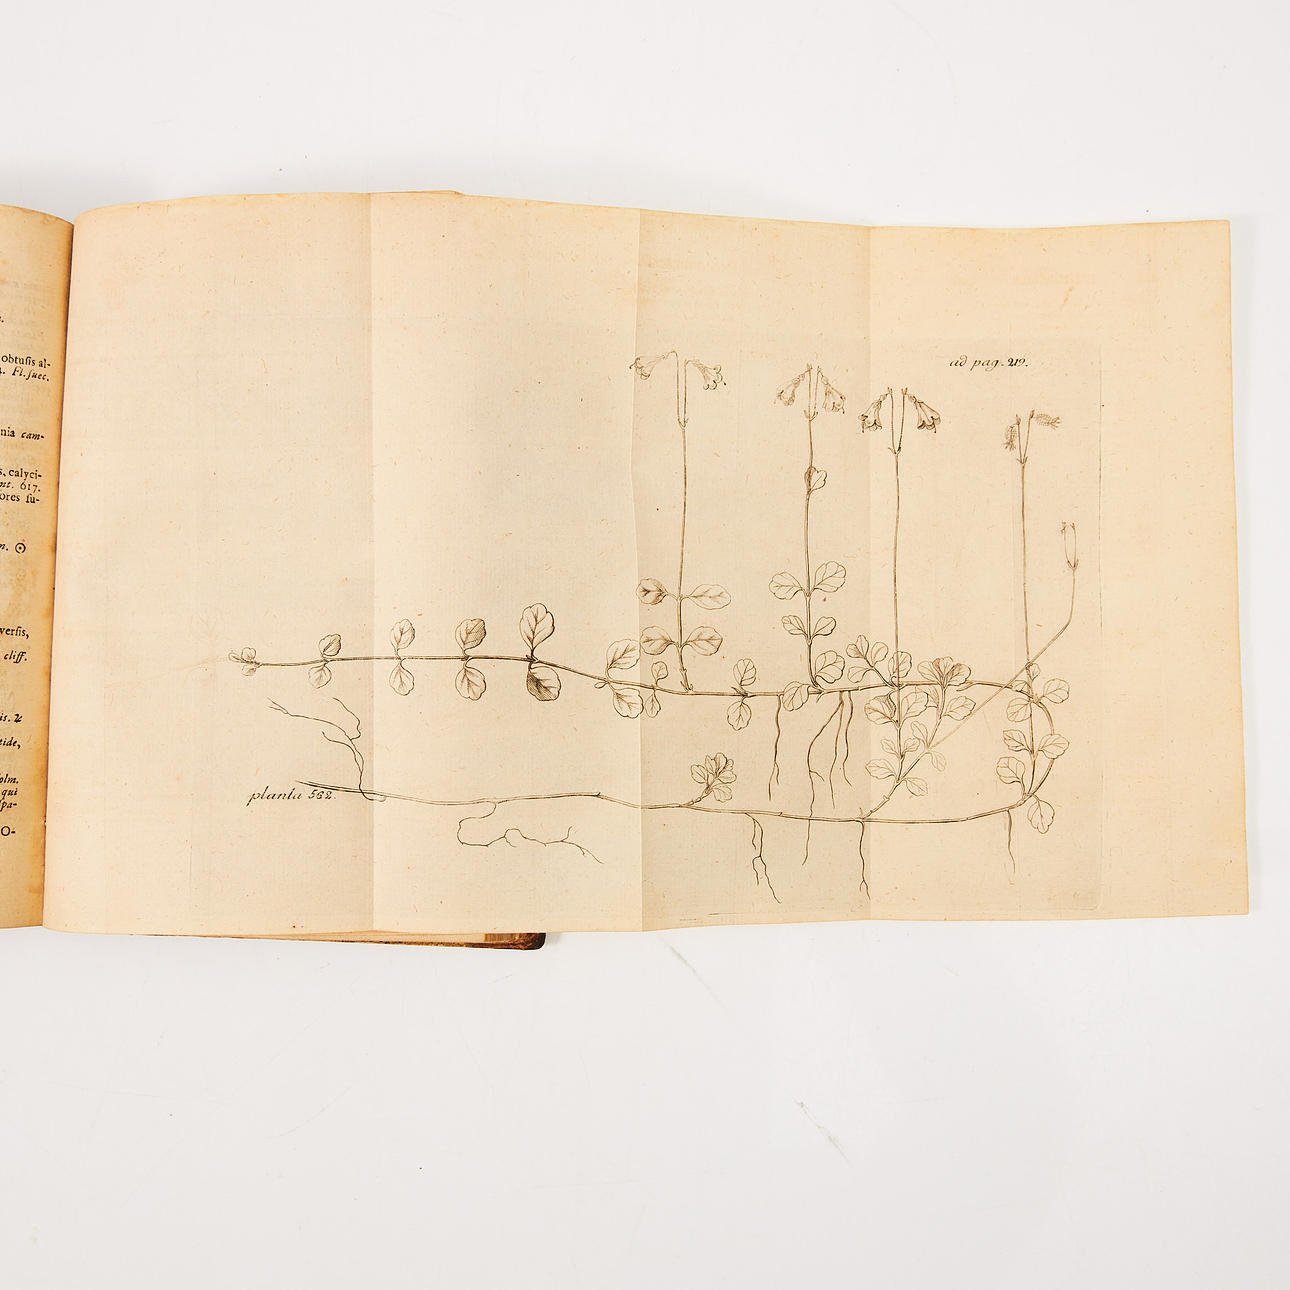 obtuſis al-
Fl. ſuec.
nia cam-
calyci-
617.
ores ſu-
☉
verſis,
cliff.
is. ♃
tide,
olm.
qui
pa-
O-
ad pag. 219.
planta 562.